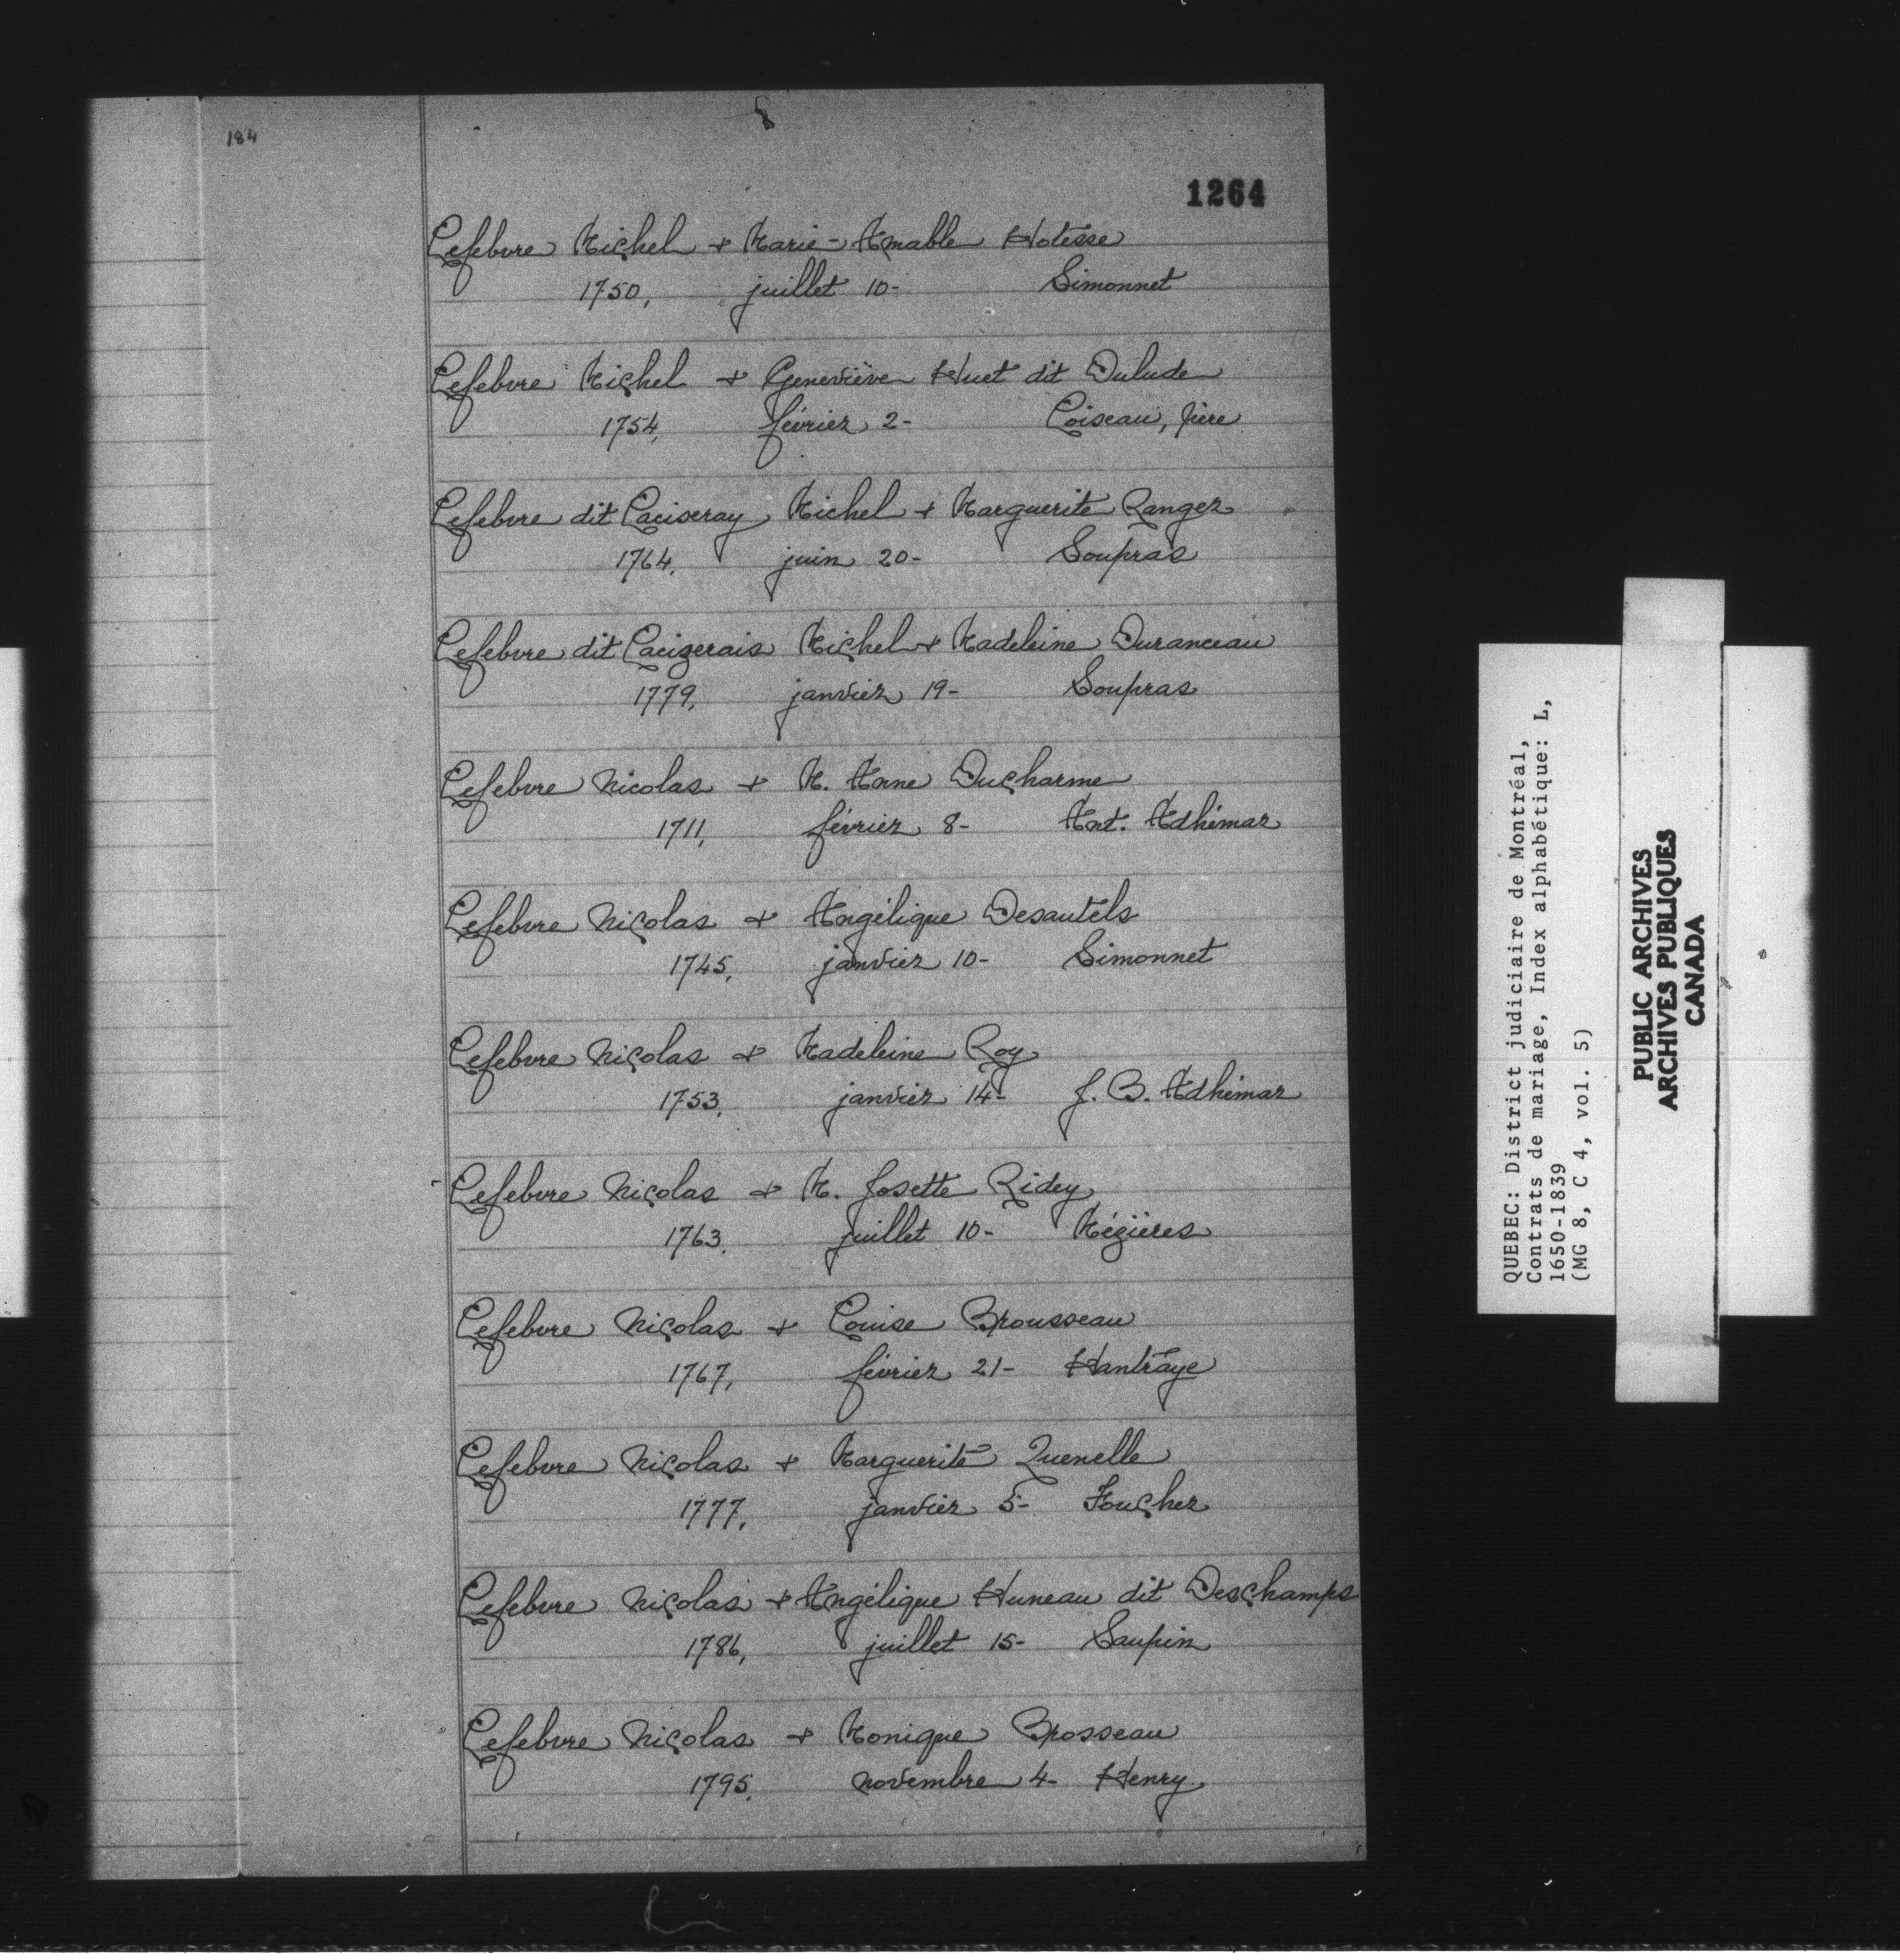 184
1264
Lefebvre Michel & Marie-Amable Hotesse
1750, juillet 10- Simonnet
Lefebvre Michel & Geneviève Huet dit Dulude
1754, février 2- Loiseau, père
Lefebvre dit Laciseray, Michel & Marguerite Ranger
1764, juin 20- Soupras
Lefebvre dit Lacizerais Michel & Madeleine Duranceau
1779, janvier 19- Soupras
Lefebvre Nicolas & M. Anne Ducharme
1711, février 8- Ant. Adhémar
Lefebvre Nicolas & Angélique Desautels
1745, janvier 10- Simonnet
Lefebvre Nicolas & Madeleine Roy
1753, janvier 14- J. B. Adhémar
Lefebvre Nicolas & M. Josette Ridey
1763, juillet 10- Mézières
Lefebvre Nicolas & Louise Brousseau
1767, février 21- Hantraye
Lefebvre Nicolas & Marguerite Quenelle
1777, janvier 5- Foucher
Lefebvre Nicolas & Angélique Huneau dit Deschamps
1786, juillet 15- Saupin
Lefebvre Nicolas & Monique Brosseau
1795, novembre 4- Henry
QUEBEC: District judiciaire de Montréal,
Contrats de mariage, Index alphabétique: L,
1650-1839
(MG 8, C 4, vol. 5)
PUBLIC ARCHIVES
ARCHIVES PUBLIQUES
CANADA